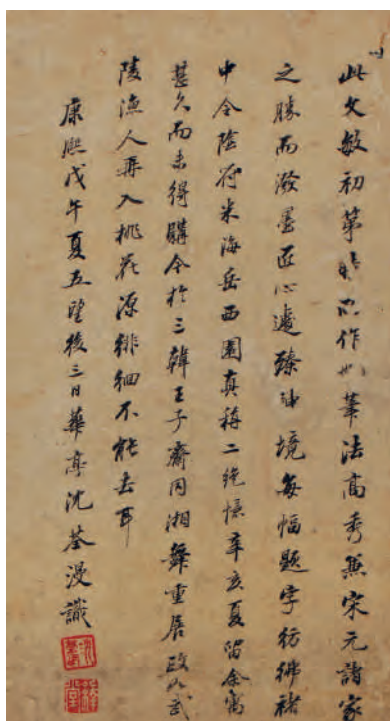 此文敏初第時所作也筆法高秀兼宋元諸家
之勝而潑墨匠心遽臻神境每幅題字彷彿褚
中令陰符米海岳西園真稱二絕憶辛亥夏留余寓
甚久而未得購今於三韓王子齋同湘舞重展政如武
陵漁人再入桃花源徘徊不能去耳
康熙戊午夏五望後三日華亭沈荃漫識